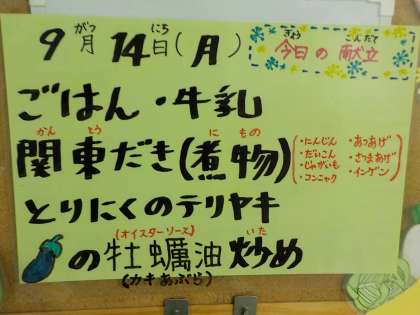 がつ にち
9月14日(月)
きょう こんだて
今日の献立
ごはん・牛乳
かん とう に もの
関東だき(煮物)
・にんじん ・あつあげ
・だいこん ・さつまあげ
・じゃがいも ・インゲン
・コンニャク
とりにくのテリヤキ
(オイスターソース) いた
の牡蠣油炒め
(カキあぶら)